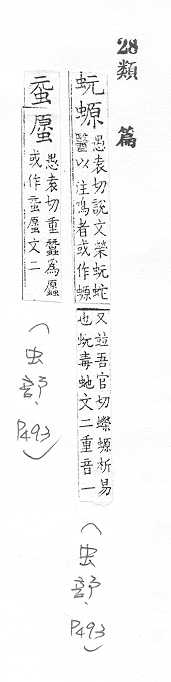 28類 篇
蚖螈
愚袁切說文榮蚖蛇
醫以注鳴者或作螈
又竝吾官切蠑螈析易
也蚖毒虵文二重音一
(虫部.P493)
愚袁切重蠶為
或作 文二
(虫部.P493)